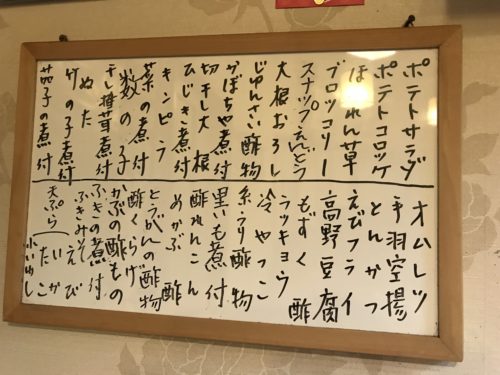 ポテトサラダ
ポテトコロッケ
ほうれん草
ブロッコリー
スナップえんどう
大根おろし
じゅんさい酢物
かぼちゃ煮付
切干し大根
ひじき煮付
キンピラ
菜の煮付
数の子
干し椎茸煮付
ぬた
竹の子煮付
茄子の煮付
オムレツ
手羽空揚
とんかつ
えびフライ
高野豆腐
もずく酢
ラッキョウ
冷やっこ
糸うり酢物
里いも煮付
酢れんこん
めかぶ酢
とうがんの酢物
酢くらげ
かぶの酢もの
ふきの煮付
ふきみそ
天ぷら
えび
いか
たこ
小いわし